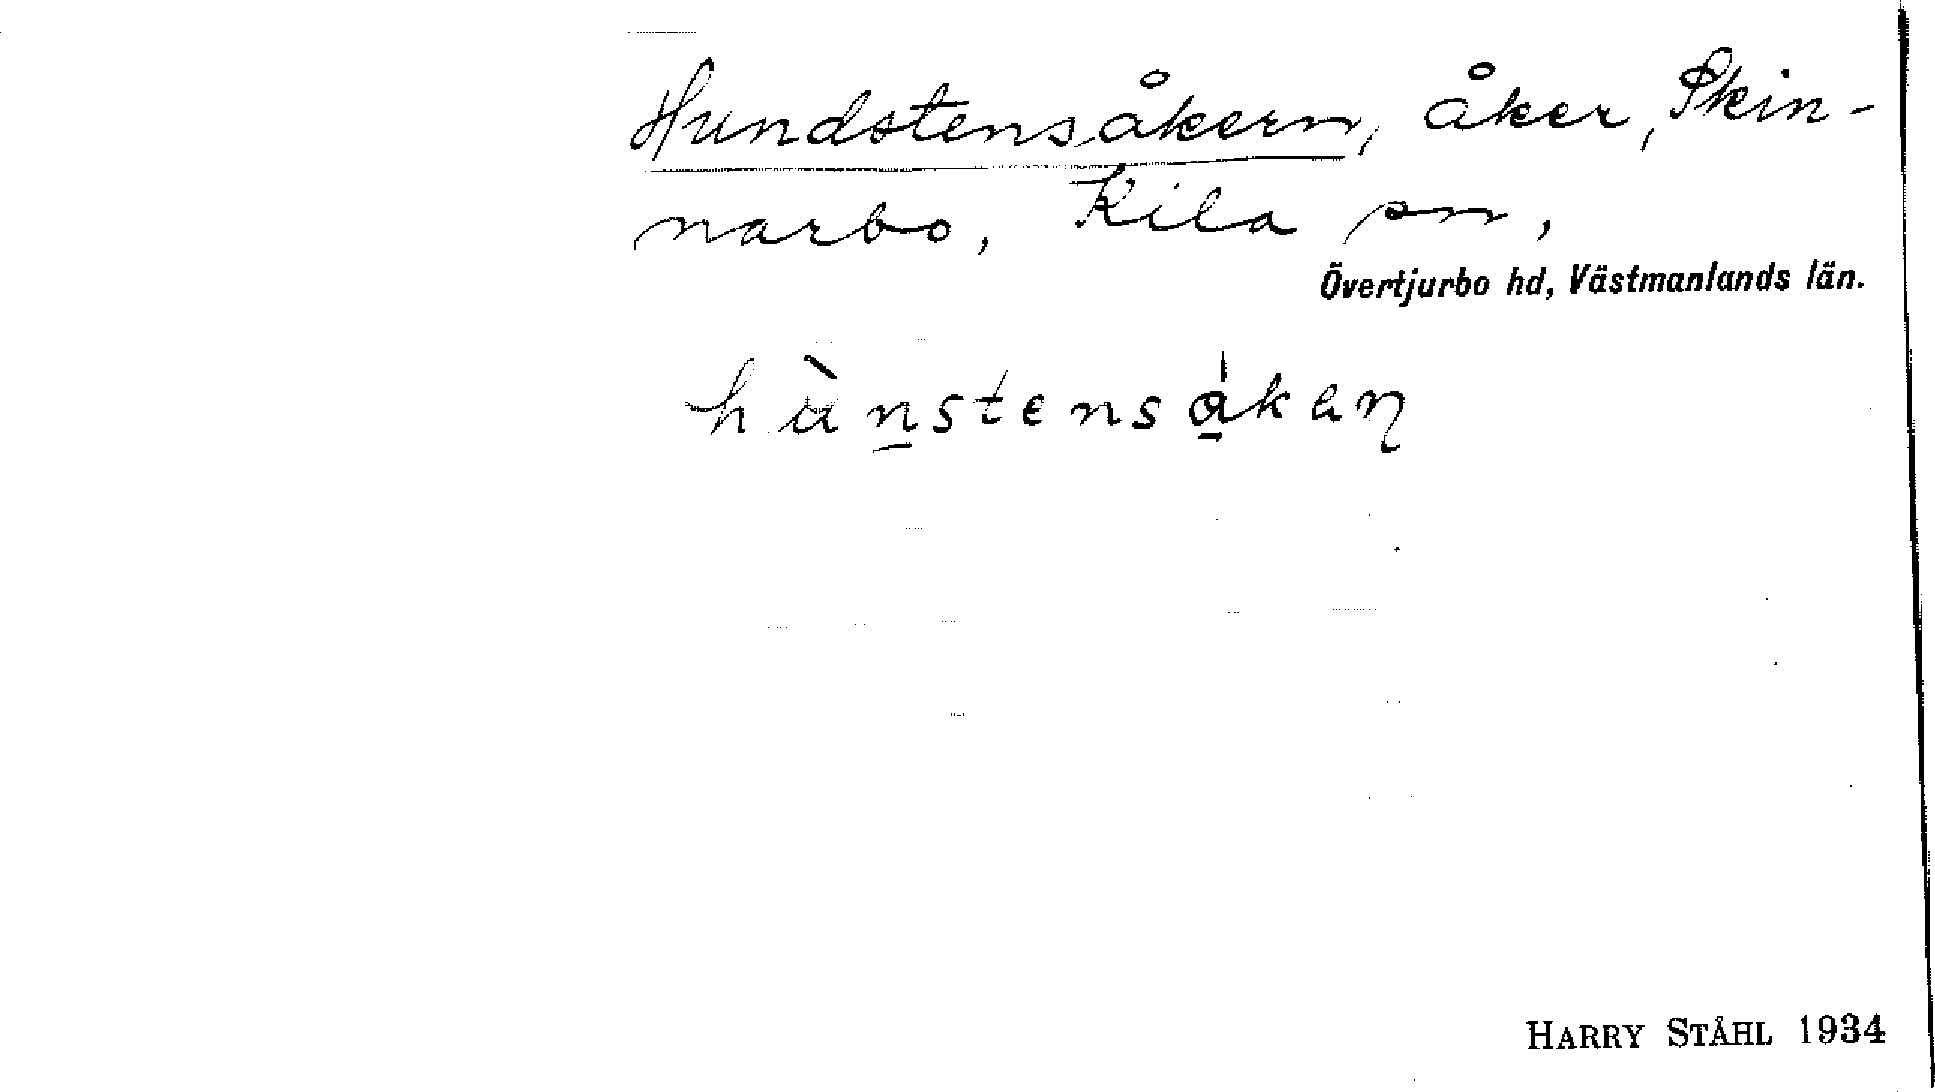 Hundstensåkern, åker, Skin-
narbo, Kila sn,
Övertjurbo hd, Västmanlands län.
hùn̠stenså̠ken
HARRY STÅHL 1934